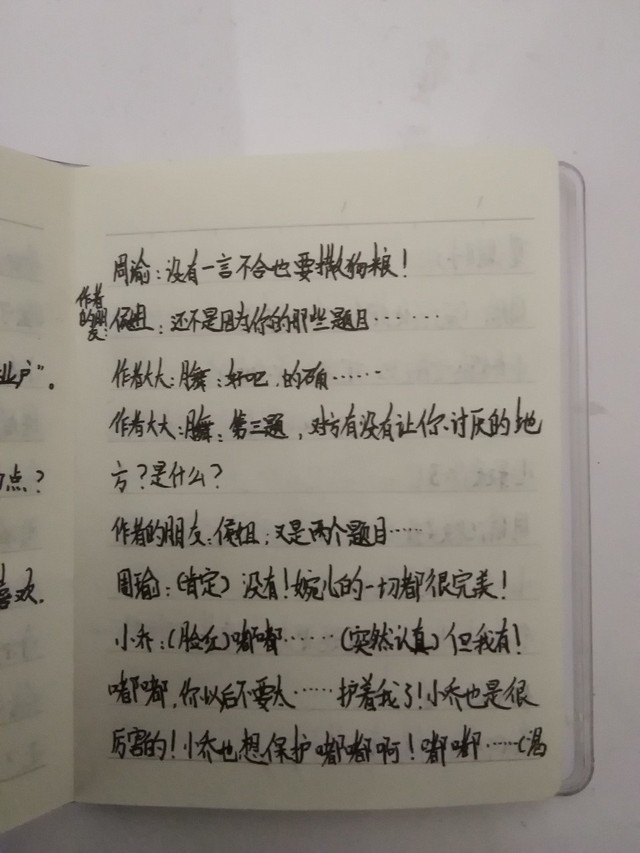 周瑜：没有一言不合也要撒狗粮！
作者的朋友：
偏姐：还不是因为你的那些题目………
作者大大：月舞：好吧，的确……
作者大大：月舞：第三题，对方有没有让你讨厌的地
方？是什么？
作者的朋友：偏姐：又是两个题目……
周瑜：（肯定）没有！婉儿的一切都很完美！
小乔：（脸红）嘟嘟……（突然认真）但我有！
嘟嘟，你以后不要太……护着我了！小乔也是很
厉害的！小乔也想保护嘟嘟啊！嘟嘟……（渴
业户”。
点？
喜欢.